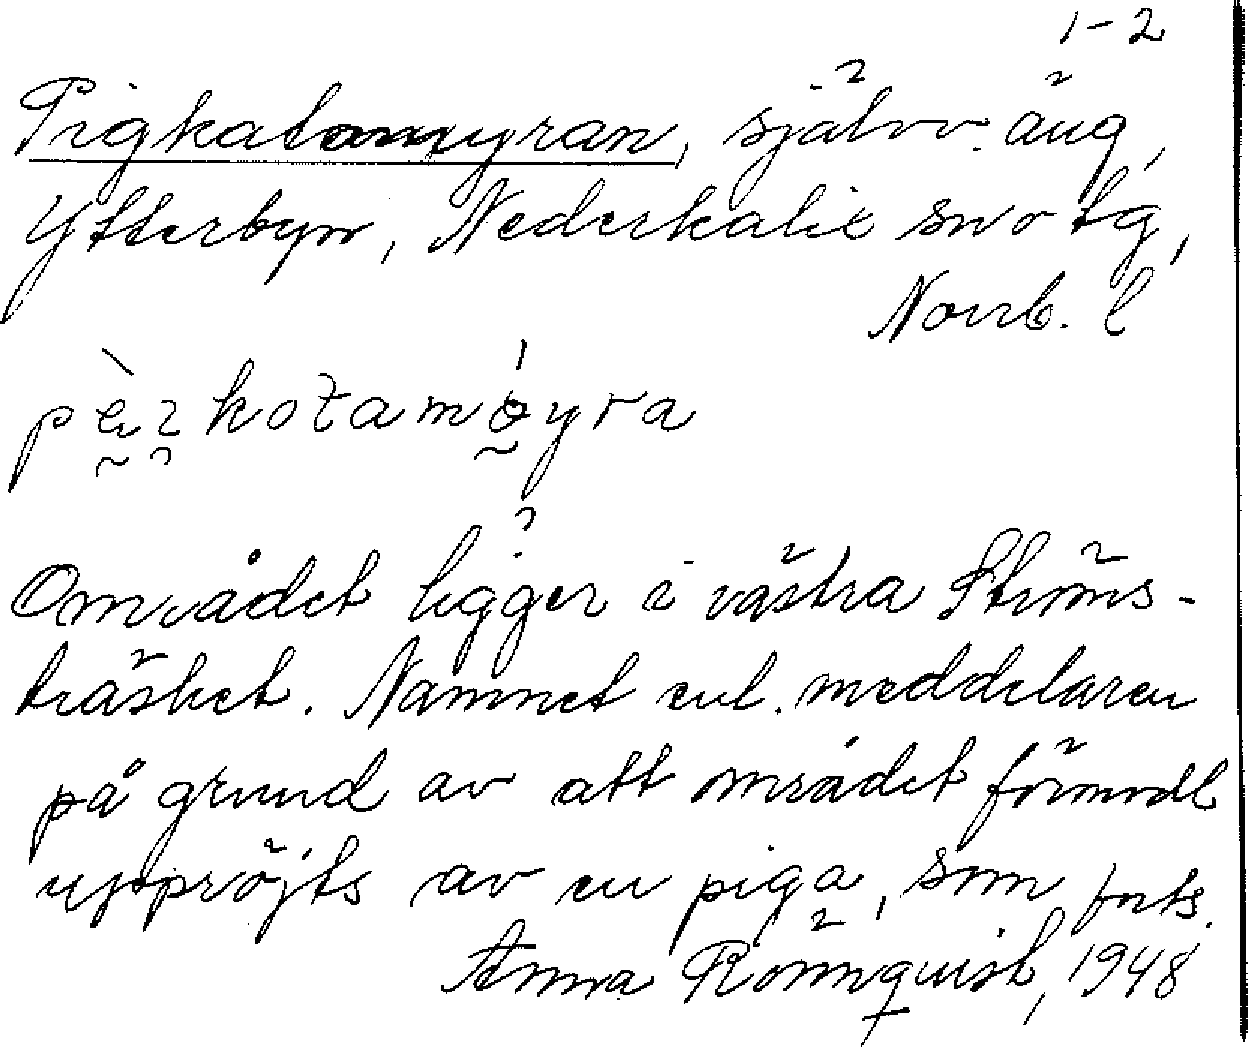 1-2
Pigkatamyran, självv. äng,
Ytterbyn, Nederkalix sn o tg,
Norrb. l
Området ligger i västra Ströms-
träsket. Namnet enl. meddelaren
på grund av att området förmodl
uppröjts av en piga, som forts.
Anna Rönnquist, 1948